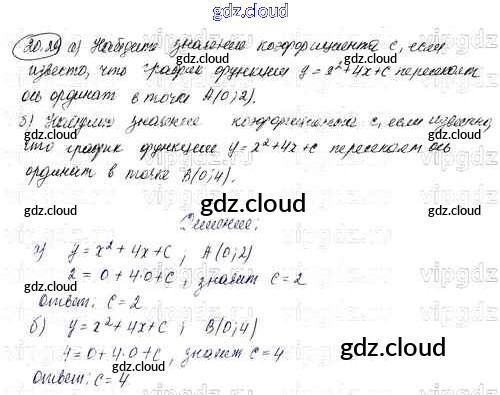 gdz.cloud
20.29 а) Найдите значение коэффициента с, если
известно, что график функции y = x² + 4x + c пересекает
ось ординат в точке A(0; 2).
б) Найдите значение коэффициента с, если известно,
что график функции y = x² + 4x + c пересекает ось
ординат в точке B(0; 4).
gdz.cloud
gdz.cloud
gdz.cloud
Решение:
а) y = x² + 4x + c ; A(0; 2)
gdz.cloud
2 = 0 + 4·0 + c, значит c = 2
ответ: c = 2
gdz.cloud
б) y = x² + 4x + c ; B(0; 4)
4 = 0 + 4·0 + c, значит c = 4
gdz.cloud
ответ: c = 4
gdz.cloud